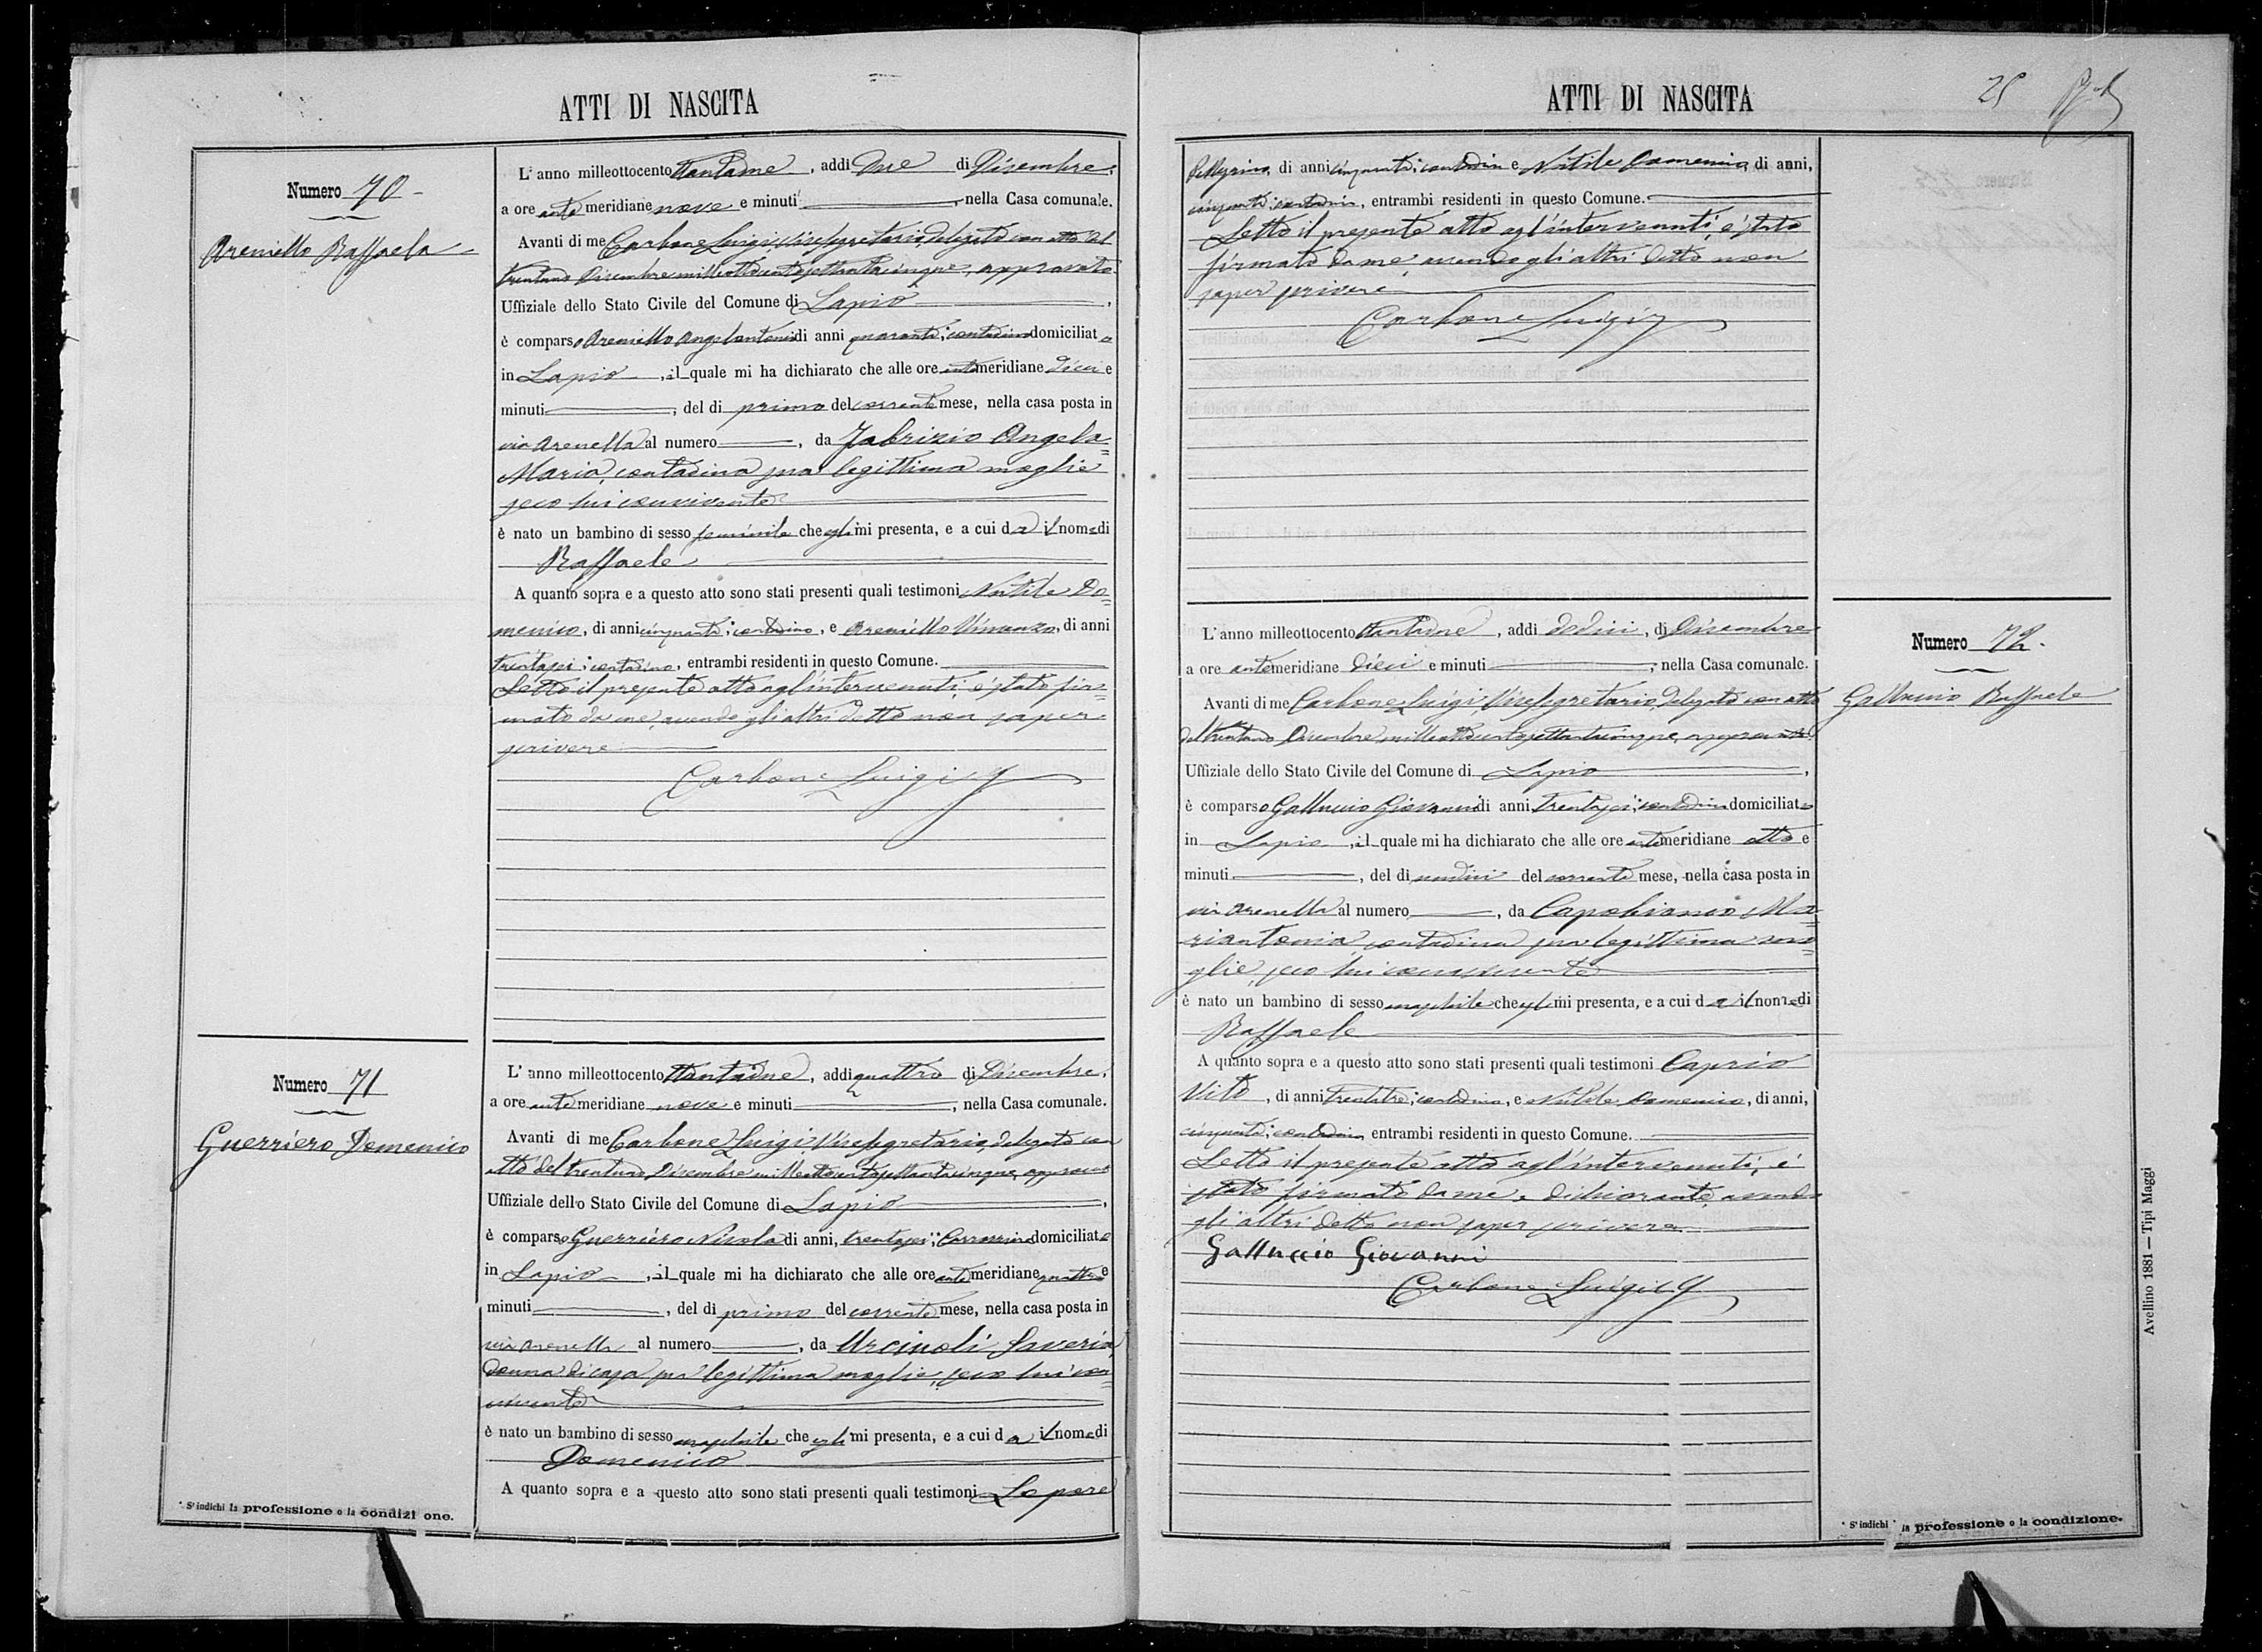 ATTI DI NASCITA
Numero 70
Areniello Raffaela
L'anno milleottocento ttantadue, addi due di Dicembre,
a ore antemeridiane nove e minuti , nella Casa comunale.
Avanti di me Carbone Luigi Vicesegretario delegato con atto del
trentuno Dicembre milleottocentosettantacinque, approvato
Uffiziale dello Stato Civile del Comune di Lapio,
è comparso Areniello Angelantonio di anni quaranta, contadino domiciliato
in Lapio, il quale mi ha dichiarato che alle ore antemeridiane dieci e
minuti , del di primo del corrente mese, nella casa posta in
via Arenella al numero , da Fabrizio Angela=
Maria, contadina sua legittima moglie
seco lui convivente
è nato un bambino di sesso feminile che egli mi presenta, e a cui da il nome di
Raffaela
A quanto sopra e a questo atto sono stati presenti quali testimoni Nutile Do=
menico, di anni cinquanta, contadino, e Areniello Vincenzo, di anni
trentasei, contadino, entrambi residenti in questo Comune.
Letto il presente atto agl'intervenuti, è stato fir=
mato da me, avendo gli altri detto non saper
scrivere
Carbone Luigi
Numero 71
Guerriero Domenico
L'anno milleottocento ttantadue, addi quattro di Dicembre,
a ore antemeridiane nove e minuti , nella Casa comunale.
Avanti di me Carbone Luigi, Vicesegretario, delegato con
atto del trentuno Dicembre milleottocentosettantacinque, approvato
Uffiziale dello Stato Civile del Comune di Lapio,
è comparso Guerriero Nicola di anni, trentasei, domiciliato
in Lapio, il quale mi ha dichiarato che alle ore antemeridiane quattro e
minuti , del di primo del corrente mese, nella casa posta in
via Arenella al numero , da Urciuoli Saveria,
donna di casa sua legittima moglie, seco lui con=
vivente
è nato un bambino di sesso maschile che egli mi presenta, e a cui da il nome di
Domenico
A quanto sopra e a questo atto sono stati presenti quali testimoni Lepore
* S'indichi la professione o la condizione.
ATTI DI NASCITA
25
Pellegrino, di anni cinquanta, contadino e Nutile Domenico, di anni,
cinquanta, contadino, entrambi residenti in questo Comune.
Letto il presente atto agl'intervenuti, è stato
firmato da me, avendo gli altri detto non
saper scrivere
Carbone Luigi
Numero 72.
Galluccio Raffaele
L'anno milleottocento ttantadue, addi dodici, di Dicembre
a ore antemeridiane dieci e minuti , nella Casa comunale.
Avanti di me Carbone Luigi Vicesegretario, delegato con atto
del trentuno Dicembre milleottocentosettantacinque, approvato
Uffiziale dello Stato Civile del Comune di Lapio,
è comparso Galluccio Giovanni di anni trentasei, contadino domiciliato
in Lapio, il quale mi ha dichiarato che alle ore antemeridiane otto e
minuti , del di undici del corrente mese, nella casa posta in
via Arenella al numero , da Capobianco Ma=
riantonia, contadina sua legittima mo=
glie, seco lui convivente
è nato un bambino di sesso maschile che egli mi presenta, e a cui da il nome di
Raffaele
A quanto sopra e a questo atto sono stati presenti quali testimoni Caprio
Vito, di anni trentatre, contadino, e Nutile Domenico, di anni,
cinquanta, contadino, entrambi residenti in questo Comune.
Letto il presente atto agl'intervenuti, è
stato firmato da me, e dichiarante, avendo
gli altri detto non saper scrivere.
Galluccio Giovanni
Carbone Luigi
* S'indichi la professione o la condizione.
Avellino 1881 — Tipi Maggi